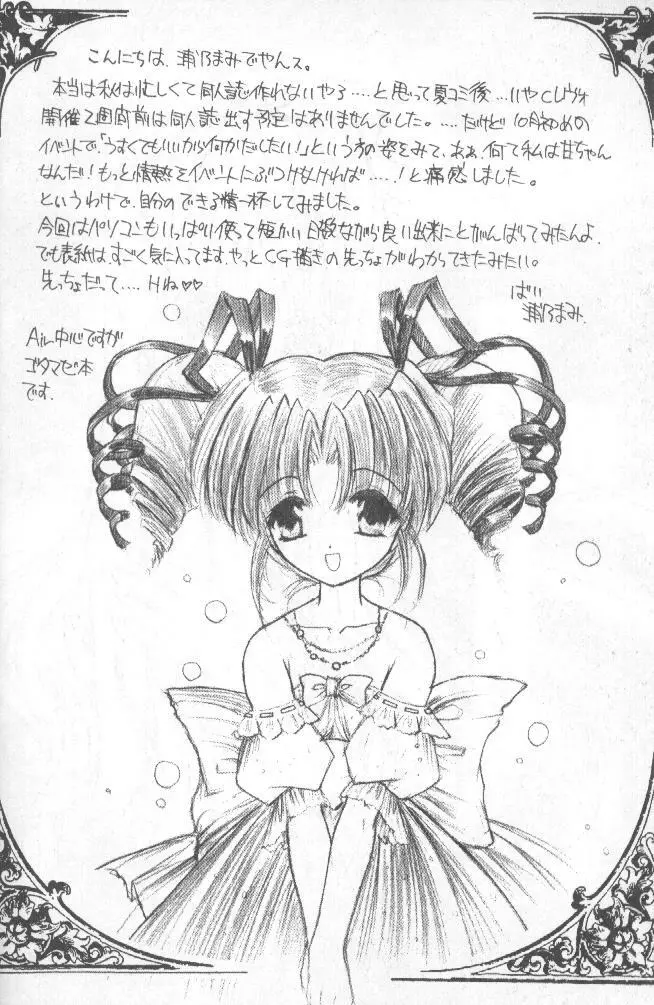 こんにちは、浦乃まみでやんス。
本当は私は忙しくて同人誌作れないやろ……と思って夏コミ後…いやCレヴォ
開催2週間前は同人誌出す予定はありませんでした。……だけど10月初めの
イベントで、「うすくてもいいから何かだしたい!」という方の姿をみて、あぁ、何て私は甘ちゃん
なんだ!もっと情熱をイベントにぶつけなければ……!と痛感しました。
というわけで、自分のできる精一杯してみました。
今回はパソコンもいっぱい使って短かい日数ながら良い出来にとがんばってみたんよ。
でも表紙は、すごく気に入ってます。やっとCG描きの先っちょがわかってきたみたい。
先っちょだって……Hね♡♡
ばい
浦乃まみ.
Air中心ですが
ゴタマゼ本
です.